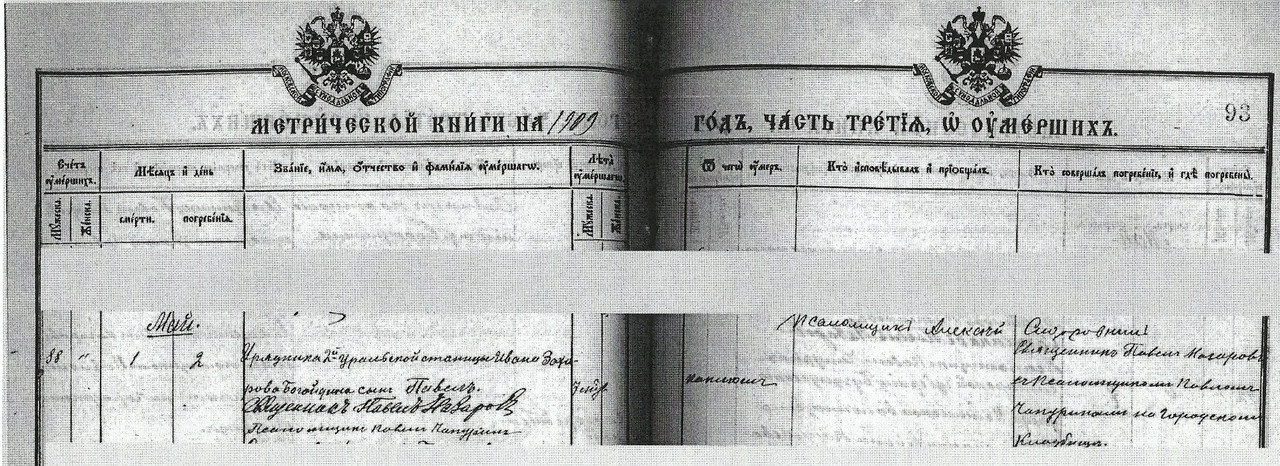 МЕТРИ́ЧЕСКОЙ КНИ́ГИ НА 1909
ГО́ДЪ, ЧА́СТЬ ТРЕ́ТІѦ, Ѡ ОУ҆МЕ́РШИХЪ.
93
Сче́тъ оу҆ме́ршихъ.
Мѣ́сяцъ и҆ де́нь
Зва́ніе, и҆́мѧ, ѻ҆́тчество и҆ фами́лїѧ оу҆ме́ршагѡ.
Лѣ́та оу҆ме́ршагѡ.
Ѿ чегѡ̀ оу҆́меръ.
Кто̀ и҆сповѣ́дывалъ и҆ прїѻбща́лъ.
Кто̀ соверша́лъ погребе́нїе, и҆ гдѣ̀ погребены̀.
Му́жеска.
Же́нска.
сме́рти.
погребе́нїѧ.
Му́жеска.
Же́нска.
Май.
Псаломщикъ Алексѣй
88 " 1 2
Урядника 2й Уральской станицы Ивана Заха-
рова сынъ Павелъ.
Священникъ Павелъ Назаровъ
Псаломщикъ Павелъ Чапуринъ
коклюшъ
Священникъ Павелъ Назаровъ
съ Псаломщикомъ Павломъ
Чапуринымъ на Городскомъ
Кладбищѣ.